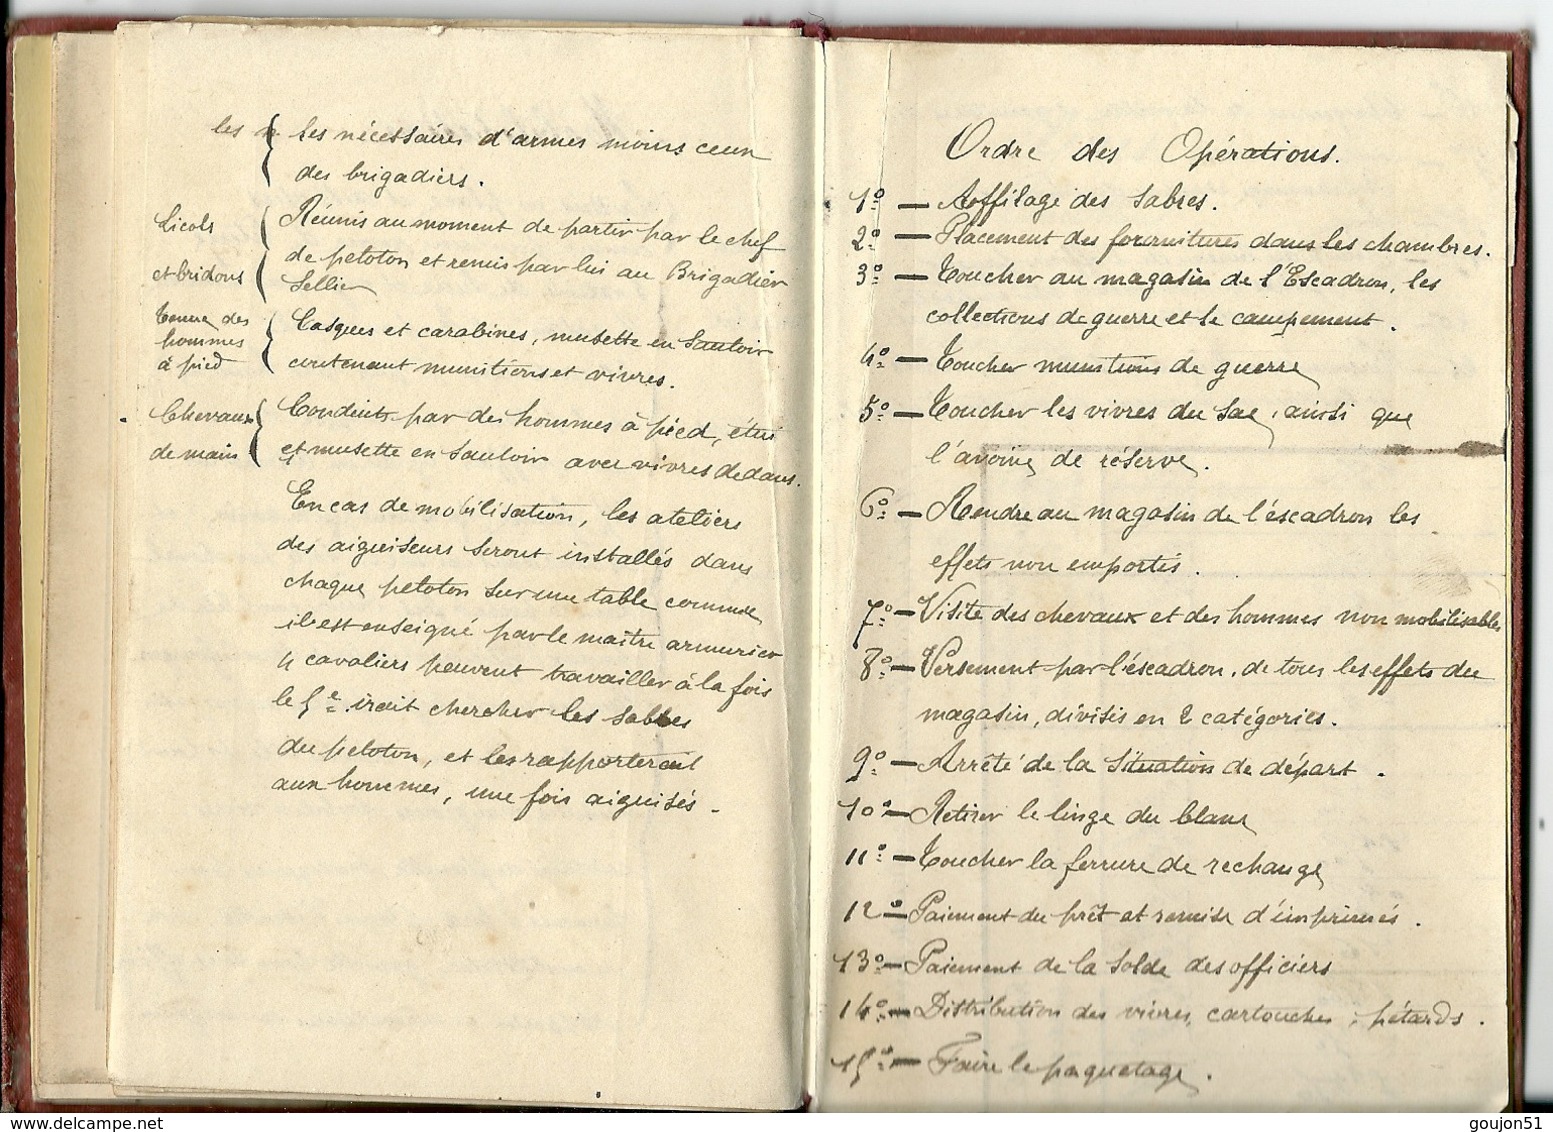 les n { les nécessaires d'armes moins ceux
des brigadiers.
Licols
et bridons
{ Réunis au moment de partir par le chef
de peloton et remis par lui au Brigadier
Sellier
Tenue des
hommes
à pied
{ Casques et carabines, musette en sautoir
contenant munitions et vivres.
Chevaux
de main
{ Conduits par des hommes à pied, étui
et musette en sautoir avec vivres dedans.
En cas de mobilisation, les ateliers
des aiguiseurs seront installés dans
chaque peloton sur une table comme
il est enseigné par le maître armurier
4 cavaliers peuvent travailler à la fois
le 5e irait chercher les sabres
du peloton, et les rapporterait
aux hommes, une fois aiguisés.
Ordre des Opérations.
1º — Affilage des sabres.
2º — Placement des fournitures dans les chambres.
3º — Toucher au magasin de l'Escadron, les
collections de guerre et le campement.
4º — Toucher munitions de guerre
5º — Toucher les vivres du sac, ainsi que
l'avoine de réserve.
6º — Rendre au magasin de l'escadron les
effets non emportés.
7º — Visite des chevaux et des hommes non mobilisables
8º — Versement par l'escadron, de tous les effets du
magasin, divisés en 2 catégories.
9º — Arrêté de la Situation de départ.
10º — Retirer le linge du blanc
11º — Toucher la ferrure de rechange
12º — Paiement du prêt et remise d'imprimés.
13º — Paiement de la solde des officiers
14º — Distribution des vivres, cartouches, pétards.
15º — Faire le paquetage.
delcampe.net
goujon51